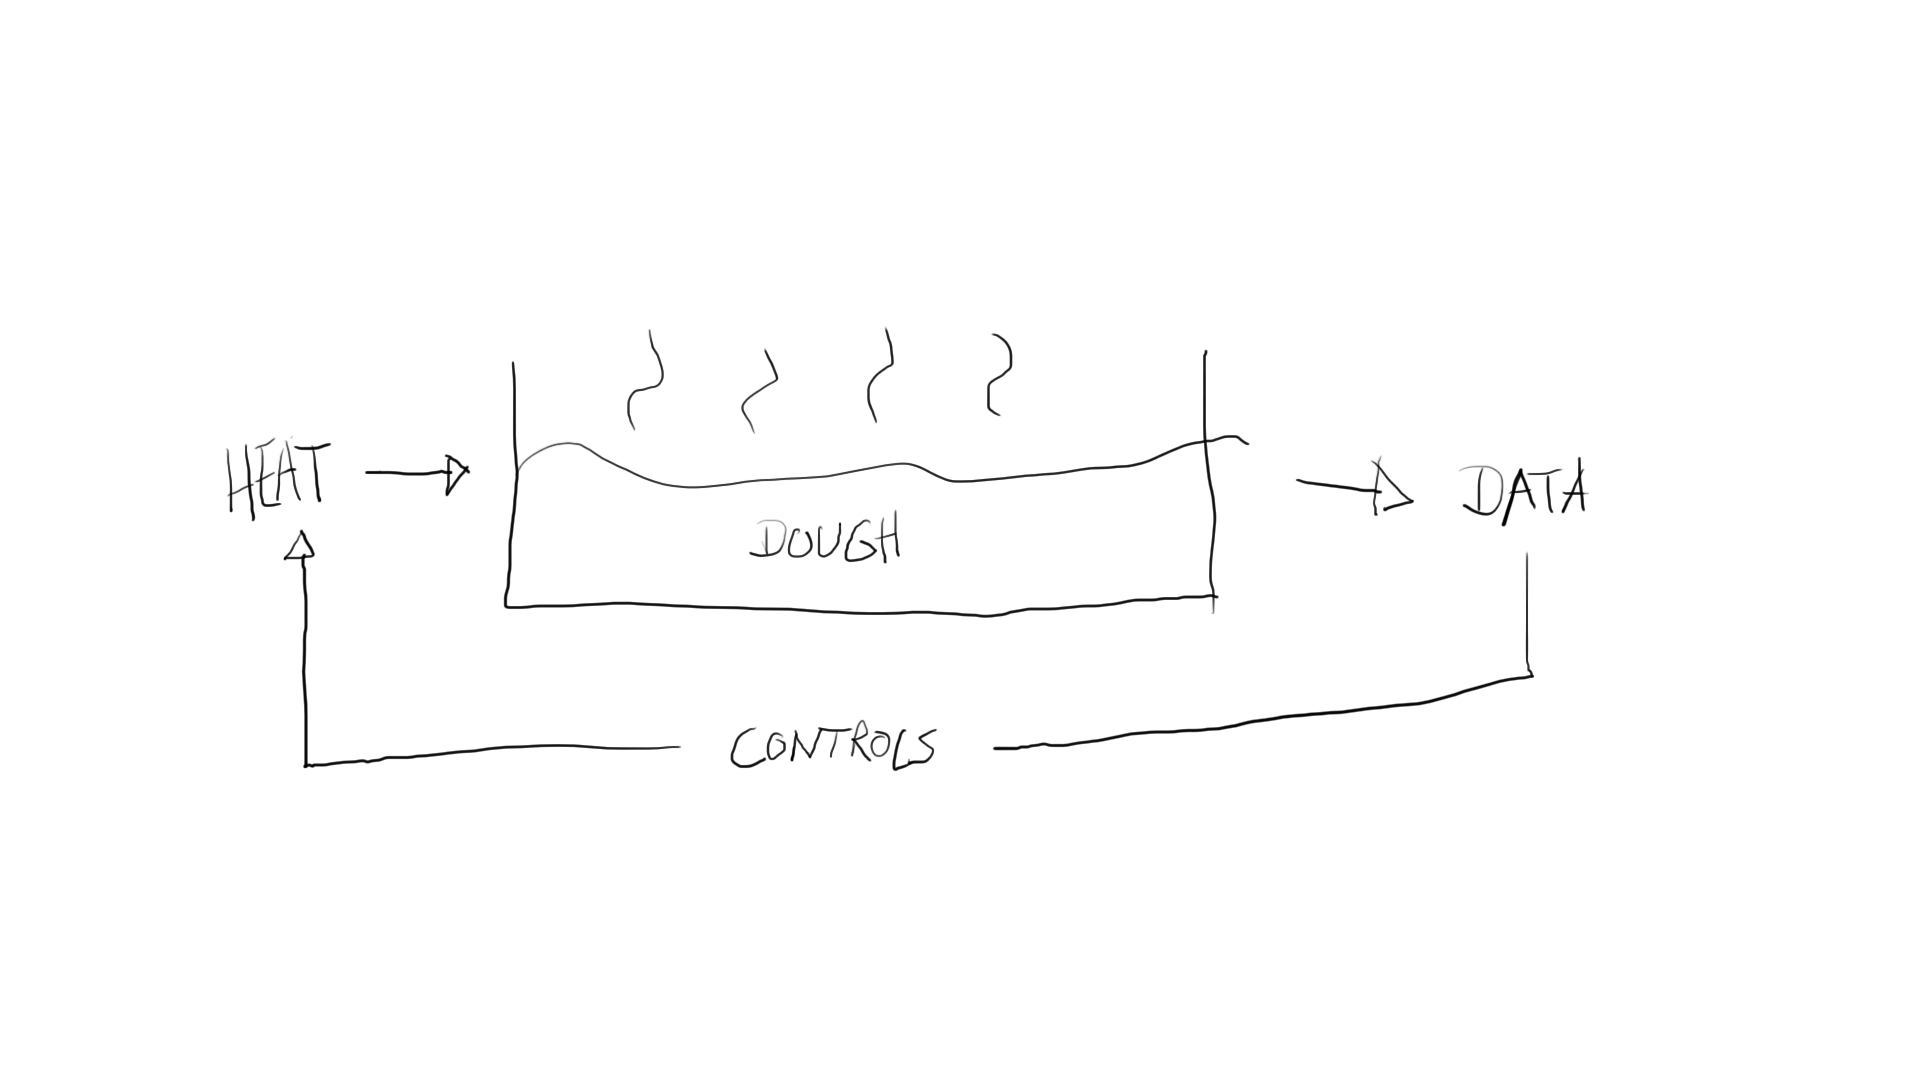 HEAT
DOUGH
DATA
CONTROLS